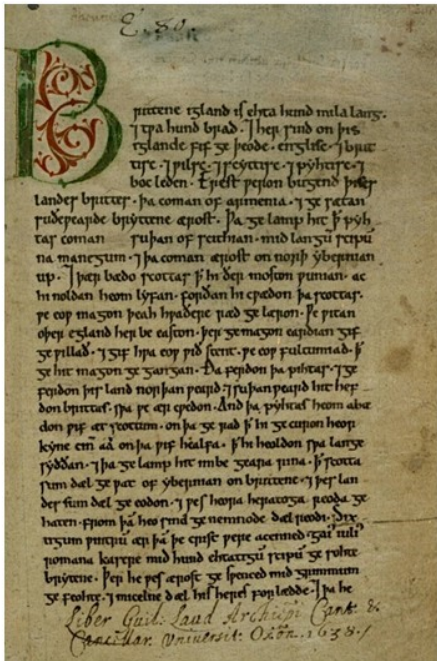 E. 80.
Brittene igland is ehta hund mila lang.
⁊ ƿa hund brad. ⁊ her sind on þis
iglande fif ge þeode. englisc. ⁊ brit
tisc. ⁊ ƿilsc. ⁊ scyttisc. ⁊ pyhtisc. ⁊
boc leden. Erest ƿeron bugend þises
landes brittes. þa coman of armenia. ⁊ ge sætan
suðeƿearde bryttene ærost. Þa ge lamp hit ꝥ pyh
tas coman suþan of scithian. mid langū scipū
na manegum. ⁊ þa coman ærost on norþ ybernian
up. ⁊ þær bædo scottas ꝥ hi ðer moston ƿunian. ac
hi noldan heom lyfan. forðan hi cƿædon þa scottas.
ƿe eoƿ magon þeah hƿaðere ræd ge læron. Ƿe ƿitan
oþer egland her be easton. þer ge magon eardian gif
ge ƿillað. ⁊ gif hƿa eoƿ ƿið stent. ƿe eoƿ fultumiað. ꝥ
ge hit magon ge gangan. Ða ferdon þa pihtas. ⁊ ge
ferdon þis land norþan ƿeard. ⁊ suþan ƿeard hit hef
don brittas. sƿa ƿe ær cƿedon. And þa pyhtas heom abæ
don ƿif æt scottum. on þa ge rad ꝥ hi ge curon heora
kyne cinn aa on þa ƿif healfa. ꝥ hi heoldon sƿa lange
syððan. ⁊ þa ge lamp hit imbe geara rina. ꝥ scotta
sum dæl ge ƿat of ybernian on brittene. ⁊ þes lan
des sum dæl ge eodon. ⁊ ƿes heora heratoga reoda ge
haten. from þā heo sind ge nemnode dæl reodi. Six
tigum ƿintrū ær þā þe crist ƿere acenned. gaiꝰ iuliꝰ
romana kasere mid hund ehtatigū scipū ge sohte
brytene. Þer he ƿes ærost ge sƿenced mid grimmum
ge feohte. ⁊ micelne dæl his heres for lædde. ⁊ þa he
Liber Guil: Laud Archiepi Cant. &
Cancellar. Universit: Oxon. 1638.